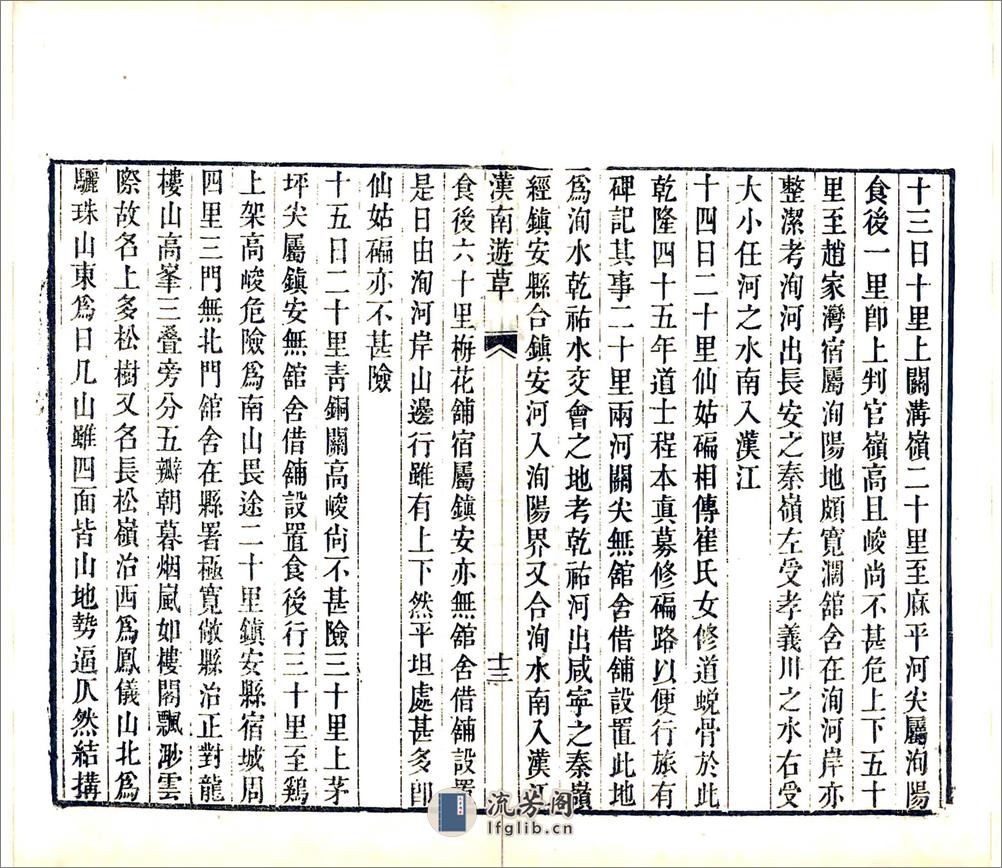 十三日十里上關溝嶺二十里至麻平河尖屬洵陽
食後一里卽上判官嶺高且峻尚不甚危上下五十
里至趙家灣宿屬洵陽地頗寬濶舘舍在洵河岸亦
整潔考洵河出長安之秦嶺左受孝義川之水右受
大小任河之水南入漢江
十四日二十里仙姑碥相傳崔氏女修道蛻骨於此
乾隆四十五年道士程本眞募修碥路以便行旅有
碑記其事二十里兩河關尖無舘舍借舖設置此地
爲洵水乾祐水交會之地考乾祐河出咸寧之秦嶺
經鎮安縣合鎮安河入洵陽界又合洵水南入漢江
漢南遊草 十三
食後六十里梅花舖宿屬鎮安亦無舘舍借舖設置
是日由洵河岸山邊行雖有上下然平坦處甚多卽
仙姑碥亦不甚險
十五日二十里靑銅關高峻尙不甚險三十里上茅
坪尖屬鎮安無舘舍借舖設置食後行三十里至鷄
上架高峻危險爲南山畏途二十里鎮安縣宿城周
四里三門無北門舘舍在縣署極寬敞縣治正對龍
樓山高峯三叠旁分五瓣朝暮烟嵐如樓閣飄渺雲
際故名上多松樹又名長松嶺治西爲鳳儀山北爲
驪珠山東爲日几山雖四面皆山地勢逼仄然結搆
流芳阁
lfglib.cn